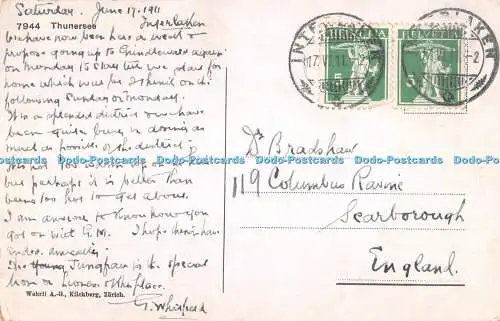 Saturday. June 17. 1911
7944 Thunersee
Interlaken
We have now been here a week &
propose going up to Grindelwald again
on Monday to stay till we start for
home which will be I think on the
following Sunday or Monday.
It is a splendid district & we have
been quite busy in doing as
much as possible of the district.
but perhaps it is better than
being too hot to get about.
I am anxious to know how you
got on with G.M. I hope things have
ended amicably.
The Jungfrau is the special
lion or lioness of the place.
G. Whitfield
Wehrli A.-G., Kilchberg, Zürich.
INTERLAKEN
17.VI.11
HELVETIA
5
HELVETIA
5
Dr Bradshaw
119 Columbus Ravine
Scarborough
England.
Dodo-Postcards Dodo-Postcards Dodo-Postcards Dodo-Postcards Dodo-Postcards